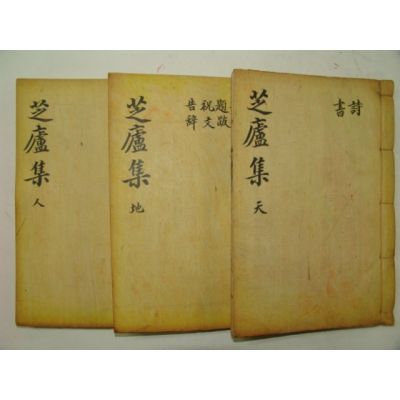 芝廬集 天
詩
書
芝廬集 地
題跋
祝文
告辭
芝廬集 人